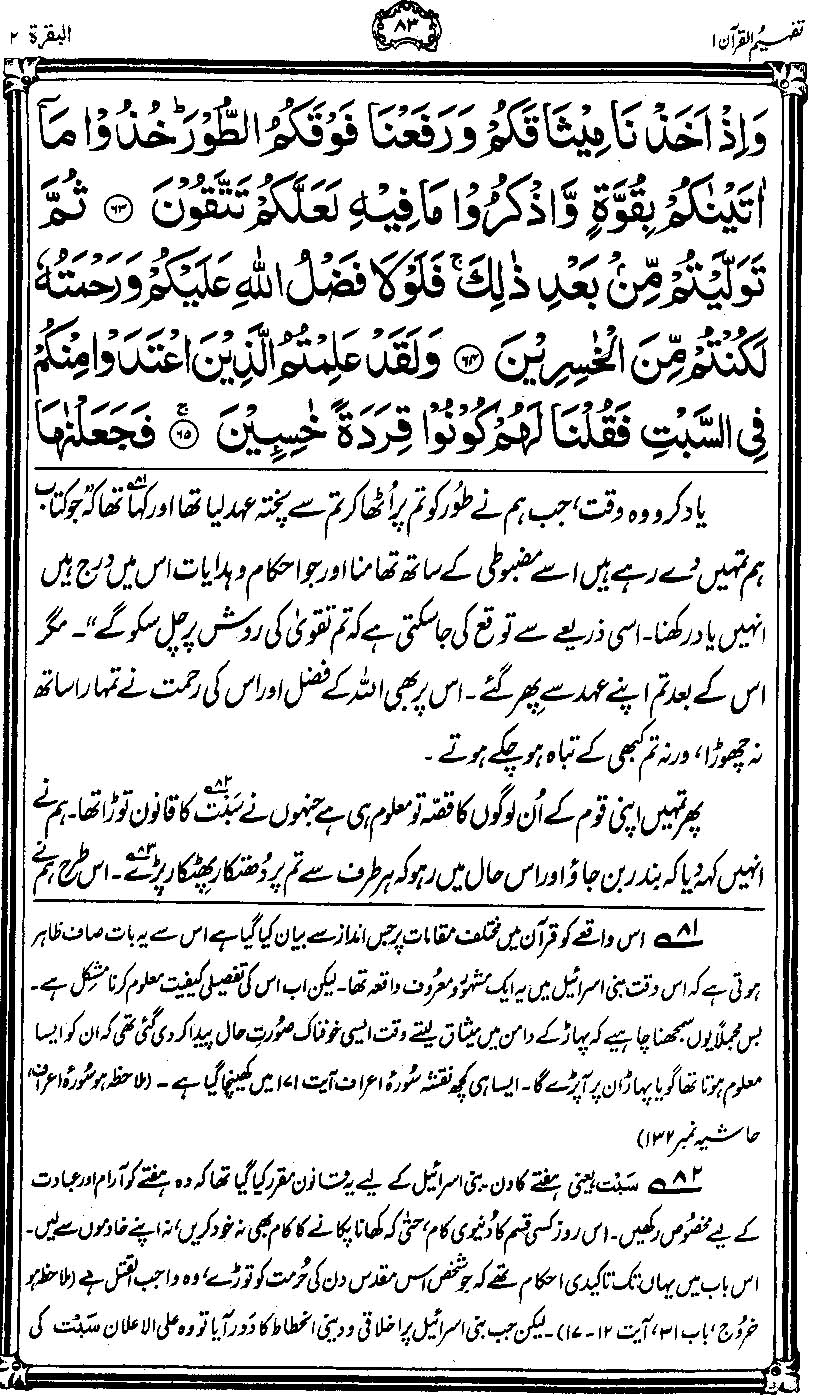 تفہیم القرآن ۱
۸۳
البقرۃ ۲
وَاِذْ اَخَذْنَا مِيْثَاقَكُمْ وَرَفَعْنَا فَوْقَكُمُ الطُّوْرَ ؕ خُذُوْا مَاۤ
اٰتَيْنٰكُمْ بِقُوَّةٍ وَّاذْكُرُوْا مَا فِيْهِ لَعَلَّكُمْ تَتَّقُوْنَ ﴿۶۳﴾ ثُمَّ
تَوَلَّيْتُمْ مِّنْۢ بَعْدِ ذٰلِكَ ۚ فَلَوْلَا فَضْلُ اللّٰهِ عَلَيْكُمْ وَرَحْمَتُهٗ
لَكُنْتُمْ مِّنَ الْخٰسِرِيْنَ ﴿۶۴﴾ وَلَقَدْ عَلِمْتُمُ الَّذِيْنَ اعْتَدَوْا مِنْكُمْ
فِي السَّبْتِ فَقُلْنَا لَهُمْ كُوْنُوْا قِرَدَةً خٰسِـِٕيْنَ ﴿۶۵﴾ ۚ فَجَعَلْنٰهَا
یاد کرو وہ وقت، جب ہم نے طُور کو تم پر اُٹھا کر تم سے پختہ عہد لیا تھا اور کہا ۸۱ تھا کہ ”جو کتاب
ہم تمہیں دے رہے ہیں اسے مضبوطی کے ساتھ تھامنا اور جو احکام و ہدایات اس میں درج ہیں
انہیں یاد رکھنا۔ اسی ذریعے سے توقع کی جاسکتی ہے کہ تم تقویٰ کی روش پر چل سکو گے“۔ مگر
اس کے بعد تم اپنے عہد سے پِھر گئے۔ اس پر بھی اللہ کے فضل اور اس کی رحمت نے تمہارا ساتھ
نہ چھوڑا، ورنہ تم کبھی کے تباہ ہو چکے ہوتے۔
پھر تمہیں اپنی قوم کے اُن لوگوں کا قصّہ تو معلوم ہی ہے جنہوں نے سَبْت ۸۲ کا قانون توڑا تھا۔ ہم نے
انہیں کہہ دیا کہ بندر بن جاؤ اور اس حال میں رہو کہ ہر طرف سے تم پر دُھتکار پھِٹکار پڑے ۸۳۔ اس طرح ہم نے
۸۱ اس واقعے کو قرآن میں مختلف مقامات پر جس انداز سے بیان کیا گیا ہے اس سے یہ بات صاف ظاہر
ہوتی ہے کہ اس وقت بنی اسرائیل میں یہ ایک مشہور و معروف واقعہ تھا۔ لیکن اب اس کی تفصیلی کیفیت معلوم کرنا مشکل ہے۔
بس مجملاً یوں سمجھنا چاہیے کہ پہاڑ کے دامن میں میثاق لیتے وقت ایسی خوفناک صُورتِ حال پیدا کر دی گئی تھی کہ ان کو ایسا
معلوم ہوتا تھا گویا پہاڑ ان پر آپڑے گا۔ ایسا ہی کچھ نقشہ سُورۂ اعراف آیت ۱۷۱ میں کھینچا گیا ہے۔ (ملاحظہ ہو سُورۂ اعراف،
حاشیہ نمبر ۱۳۲)
۸۲ سَبْت، یعنی ہفتے کا دن۔ بنی اسرائیل کے لیے یہ قانون مقرر کیا گیا تھا کہ وہ ہفتے کو آرام اور عبادت
کے لیے مخصوص رکھیں۔ اس روز کسی قسم کا دُنیوی کام، حتیٰ کہ کھانا پکانے کا کام بھی نہ خود کریں، نہ اپنے خادموں سے لیں۔
اس باب میں یہاں تک تاکیدی احکام تھے کہ جو شخص اس مقدس دن کی حُرمت کو توڑے، وہ واجب القتل ہے (ملاحظہ ہو
خروج، باب ۳۱، آیت ۱۲-۱۷)۔ لیکن جب بنی اسرائیل پر اخلاقی و دینی انحطاط کا دَور آیا تو وہ علی الاعلان سَبْت کی